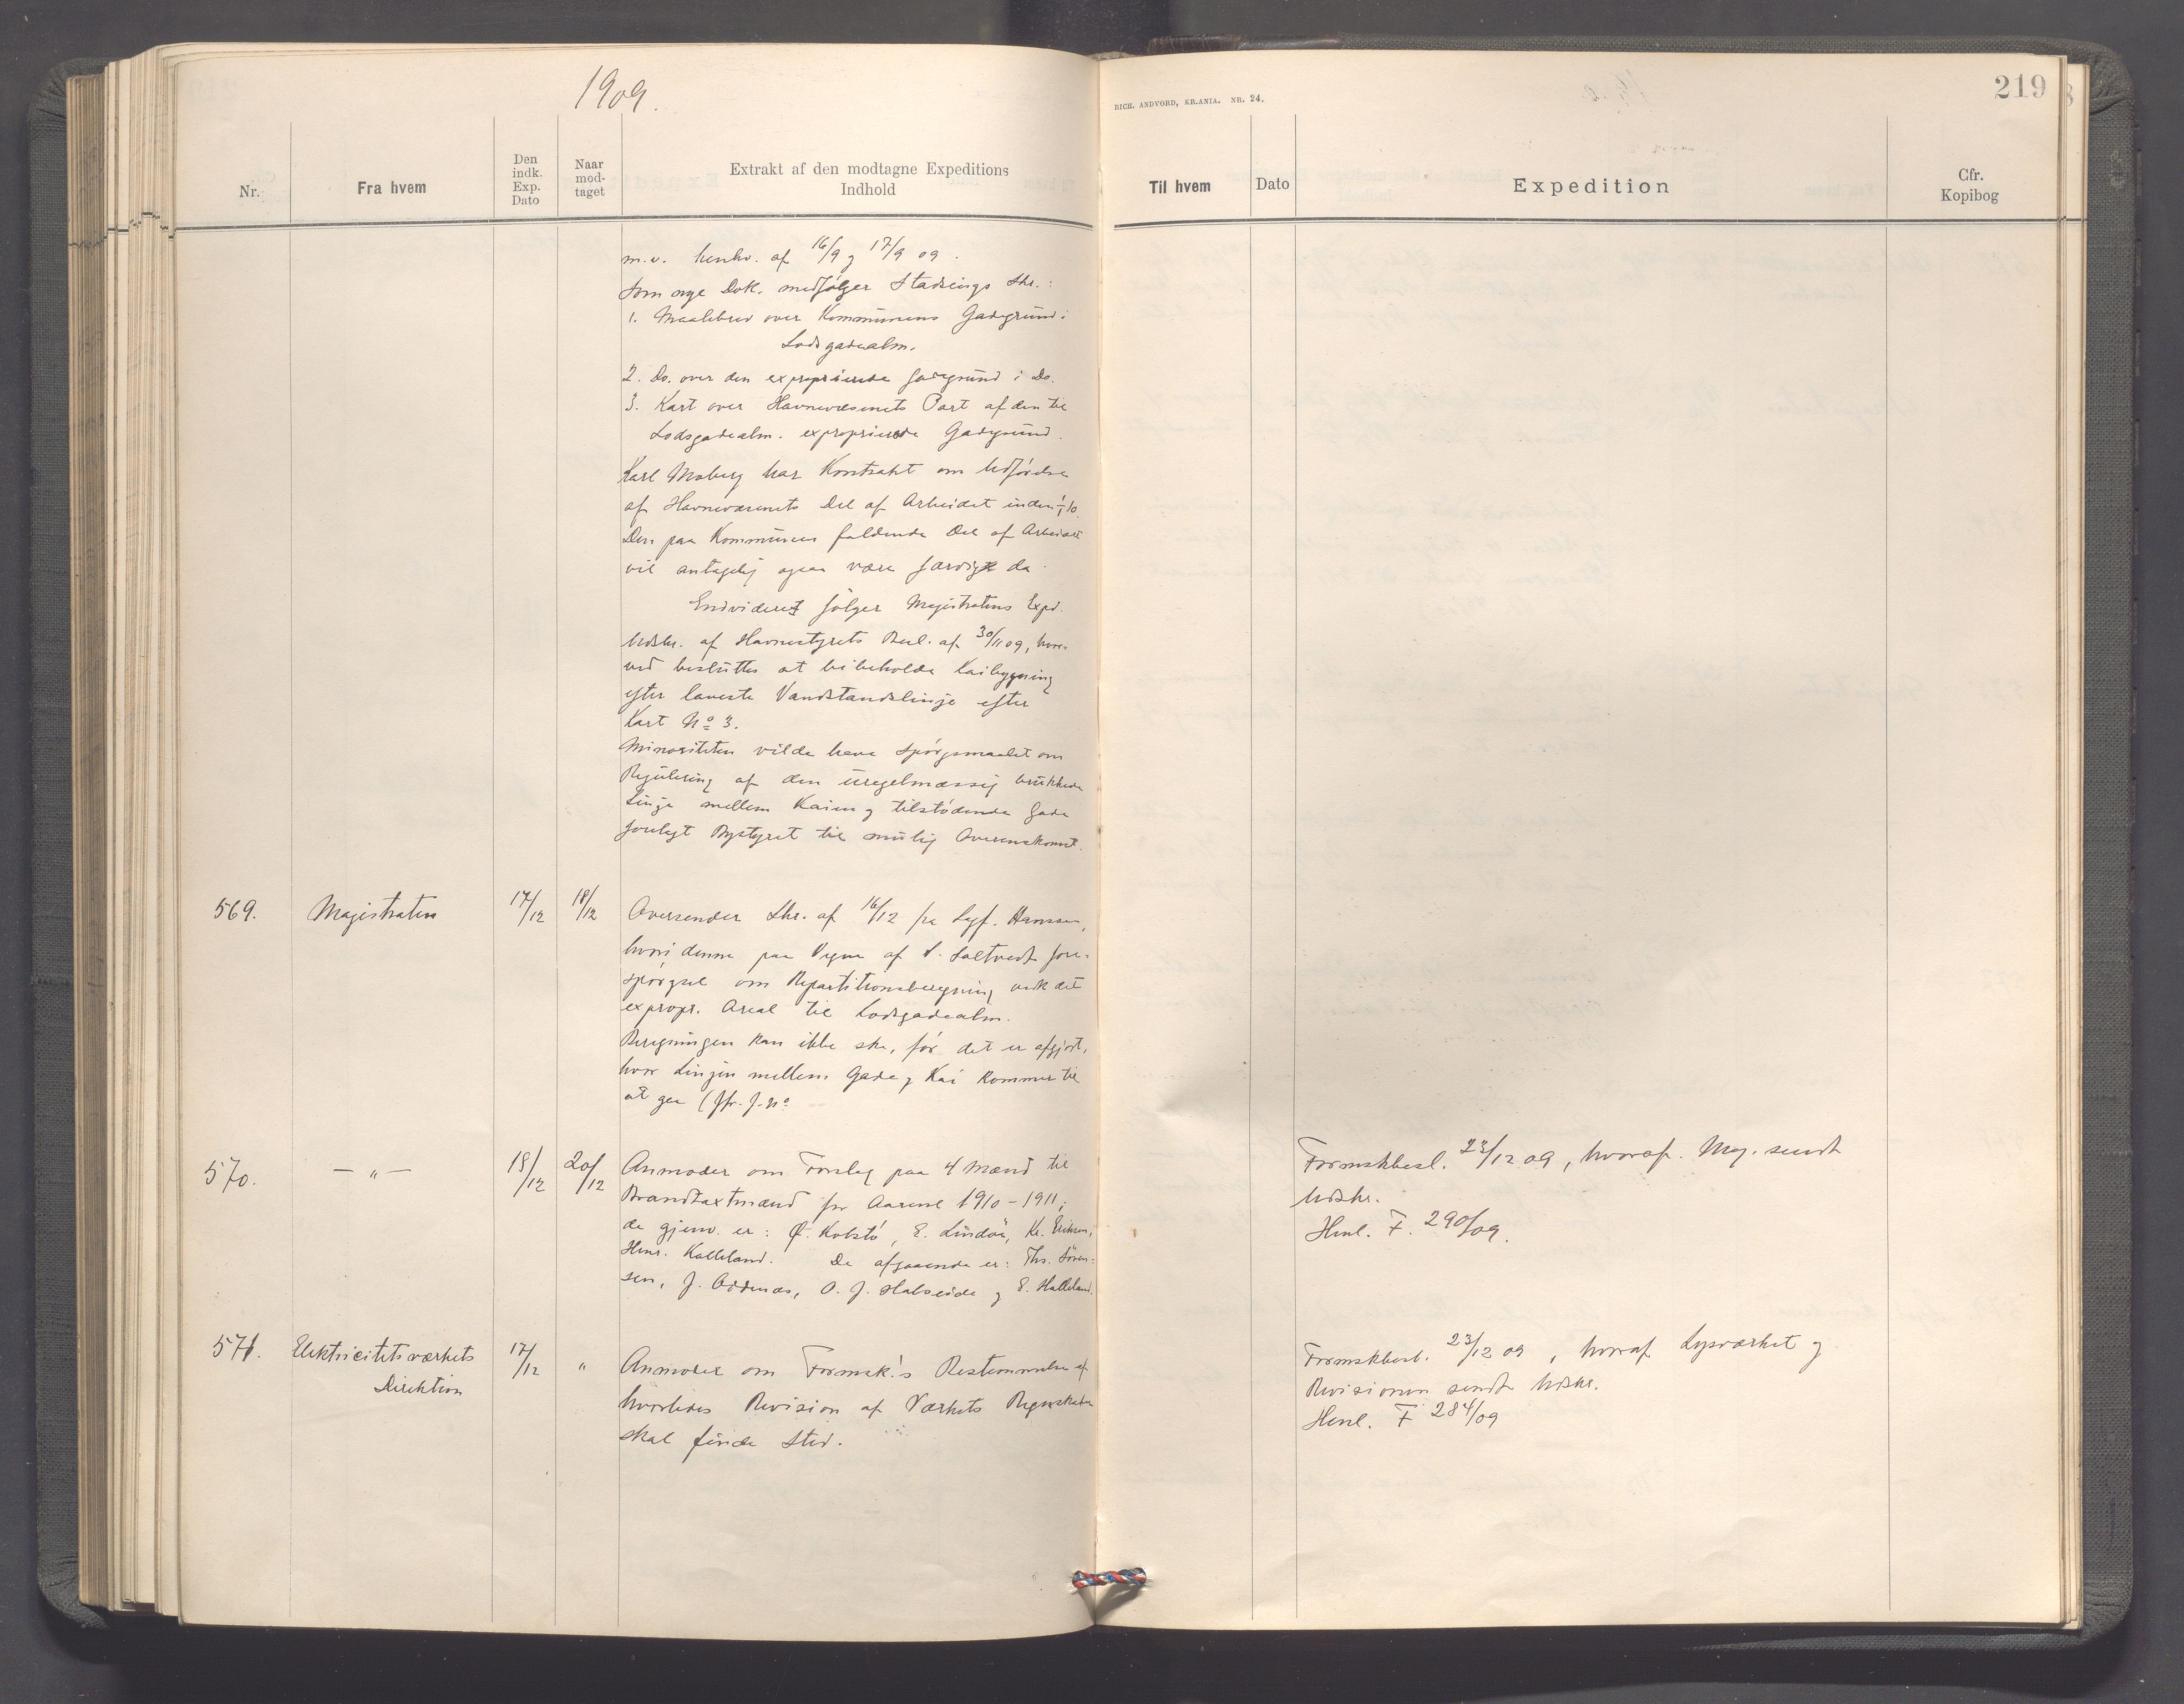 1909.
Nr.
Fra hvem
Den indk. Exp. Dato
Naar mod-taget
Extrakt af den modtagne Expeditions
Indhold
m.v. henhv. af 16/9 og 17/9 09.
Som nye Dok. medfølger Stadsings Skr.:
1. Maalebrev over Kommunens Gadegrund i
Lodsgadealm.
2. Do. over den exproprierede Gadegrund i Do.
3. Kart over Havnevæsenets Part af den til
Lodsgadealm. exproprierede Gadegrund.
Karl Moberg har Kontrakt om Udførelse
af Havnevæsenets Del af Arbeidet inden
Den paa Kommunen faldende Del af Arbeidet
vil antagelig ogsaa være færdig da.
Endvidere følger Magistratens Exped.
Udskr. af Havnestyrets Besl. af 30/11 09, hvor-
ved besluttes at bibeholde Kaibygning
efter laveste Vandstandslinje efter
Kart No 3.
Minoriteten vilde have Spørgsmaalet om
Regulering af den uregelmæssig brukkede
Linje mellem Kaien og tilstødende Gade
forelagt Bystyret til mulig Overenskomst.
569.
Magistraten
17/12
18/12
Oversender Skr. af 16/12 fra Sagf. Hanssen,
hvori denne paa Vegne af S. Saltvedt fore-
spørgsel om Repartitionsberegning vedk det
expropr. Areal til Lodsgadealm.
Beregningen kan ikke ske, før det er afgjort,
hvor Linjen mellem Gade og Kai kommer til
at gaa (Jfr. J. No
570.
— „ —
18/12
20/12
Anmoder om Forslag paa 4 Mænd til
Brandtaxtmænd for Aarene 1910 - 1911;
de gjenv. er: Ø. Kolstø, E. Lindøe, Kr. Eriksen,
Henr. Kalleland. De afgaaende er: Ths. Søren-
sen, J. Oddenæs, O. J. Halseide og E. Halleland.
571.
Elektricitetsværkets
Direktion
17/12
"
Anmoder om Formsk.'s Bestemmelse af
hvorledes Revision af Værkets Regnskaber
skal finde Sted.
RICH. ANDVORD, KR.ANIA. NR. 24.
219
Til hvem
Dato
Expedition
Cfr.
Kopibog
Formskbesl. 23/12 09, hvoraf Mag. sendt
Udskr.
Henl. F. 290/09.
Formskbesl. 23/12 09, hvoraf Lysværket og
Revisionen sendt Udskr.
Henl. F 284/09